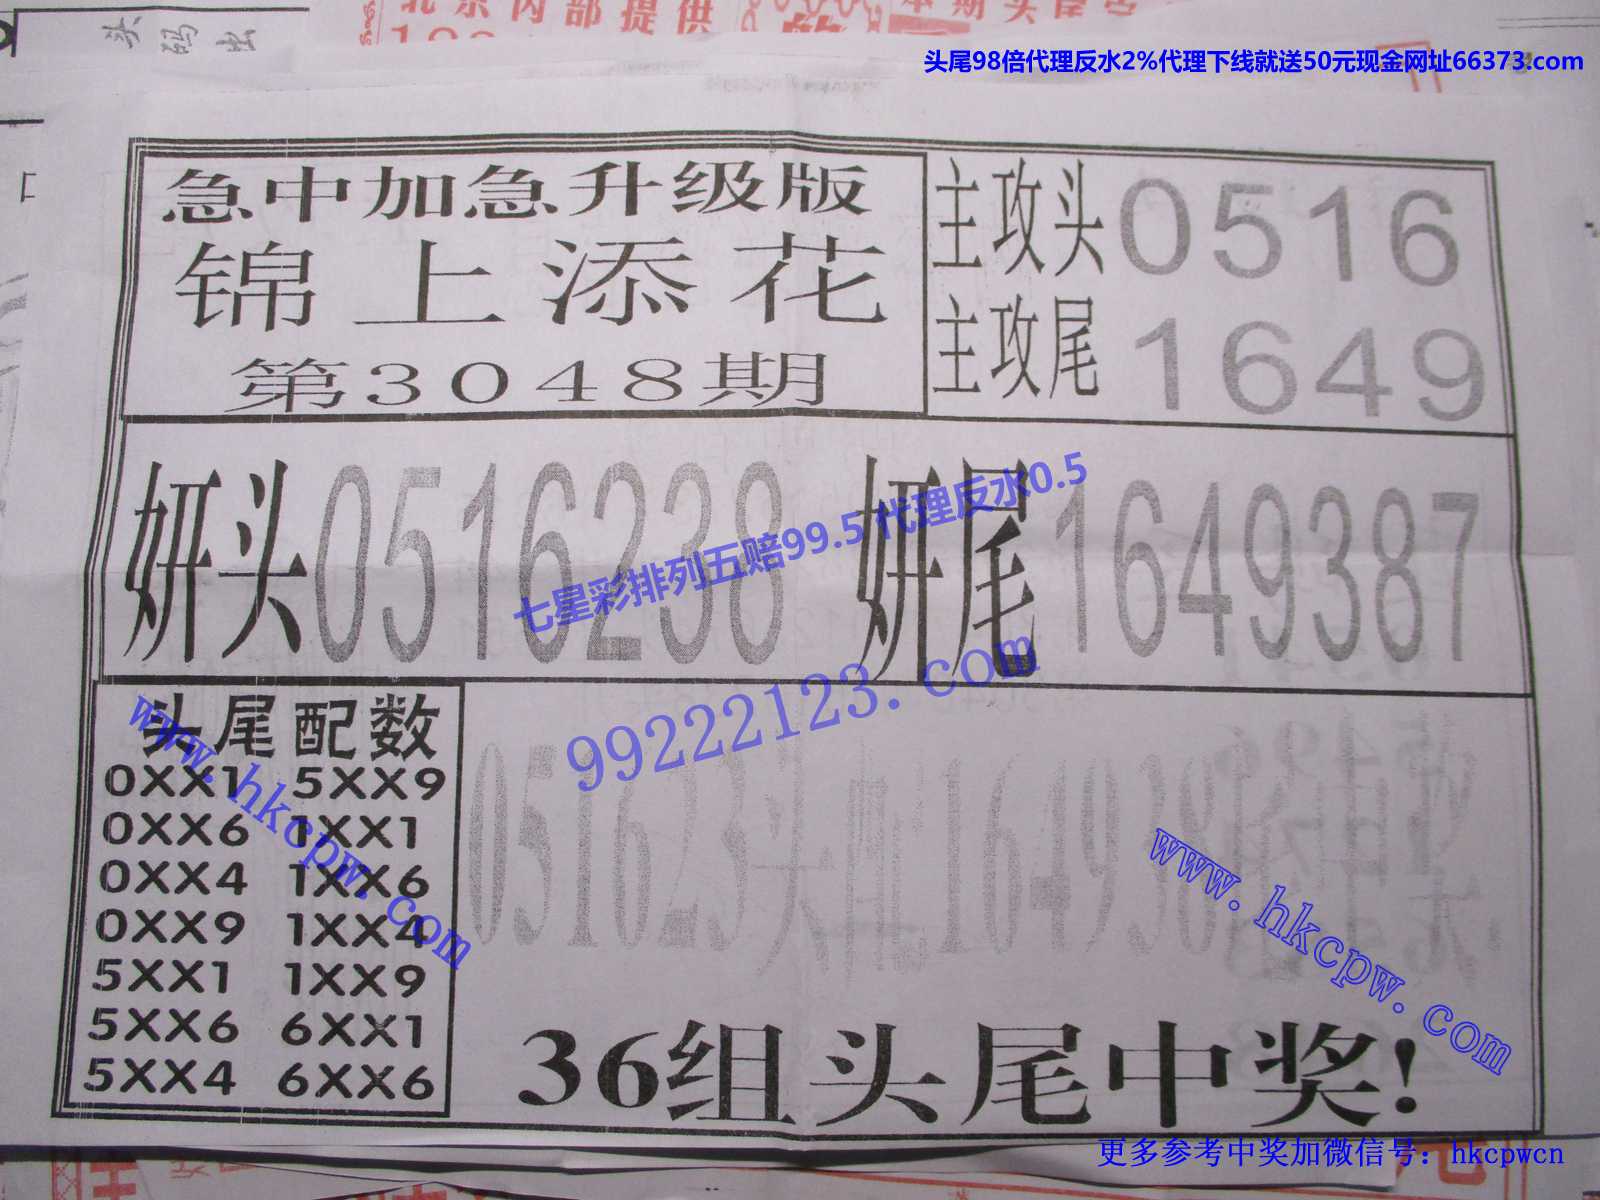 头码出
北京内部提供
本期头尾
头尾98倍代理反水2%代理下线就送50元现金网址66373.com
急中加急升级版
锦上添花
第3048期
主攻头0516
主攻尾1649
妍头0516238
妍尾1649387
七星彩排列五赔99.5 代理反水0.5
99222123.com
头尾配数
0XX1 5XX9
0XX6 1XX1
0XX4 1XX6
0XX9 1XX4
5XX1 1XX9
5XX6 6XX1
5XX4 6XX6
www.hkcpw.com
051623头配164938
www.hkcpw.com
36组头尾中奖!
更多参考中奖加微信号：hkcpwcn